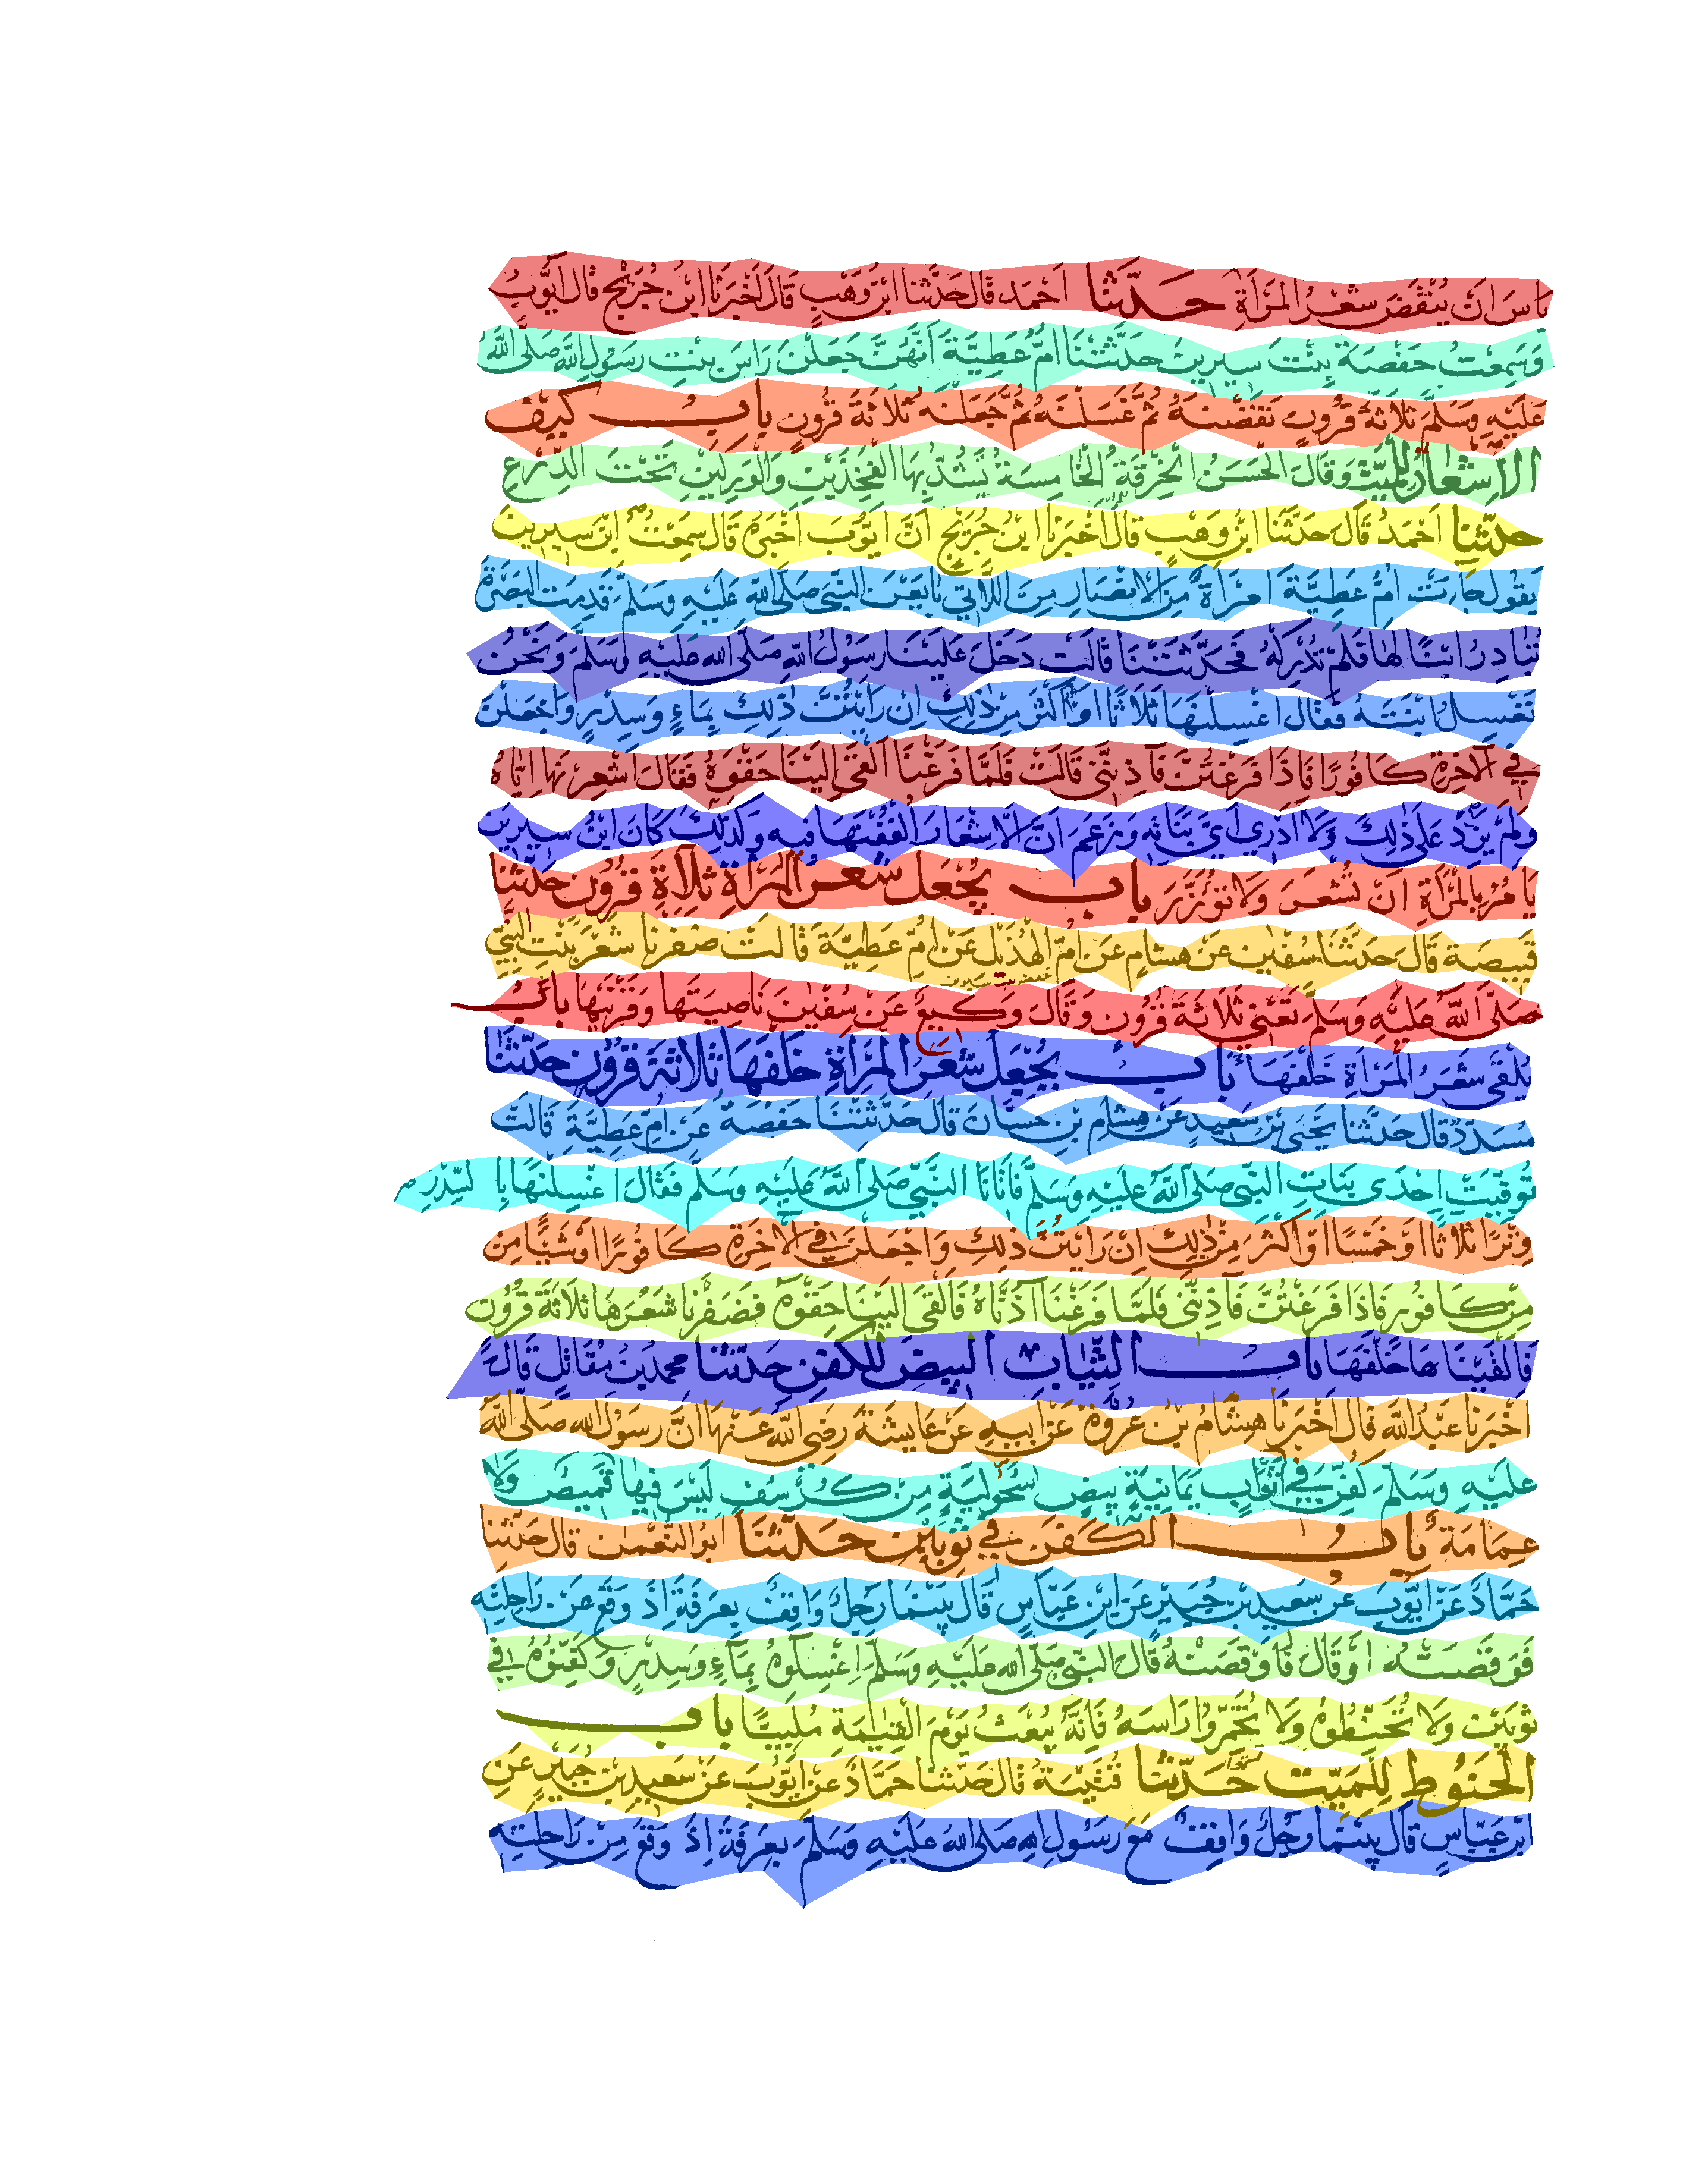 بَاسَ اَنْ يُنْقَضَ شَعْرُ الْمَرْأَةِ حَدَّثَنَا اَحْمَد قَالَ حَدَّثَنَا ابْنُ وَهْبٍ قَالَ اَخْبَرَنَا ابْنُ جُرَيْجٍ قَالَ اَيُّوْبُ
وَسَمِعْتُ حَفْصَةَ بِنْتَ سِيرِينَ حَدَّثَتْنَا اُمُّ عَطِيَّةَ اَنَّهُنَّ جَعَلْنَ رَاْسَ بِنْتِ رَسُوْلِ اللّٰهِ صَلَّى اللّٰهُ
عَلَيْهِ وَسَلَّمَ ثَلَاثَةَ قُرُوْنٍ نَقَضْنَهُ ثُمَّ غَسَلْنَهُ ثُمَّ جَعَلْنَهُ ثَلَاثَةَ قُرُوْنٍ بابُ كَيْفَ
الْاِشْعَارُ لِلْمَيِّتِ وَقَالَ الْحَسَنُ الْخِرْقَةُ الْخَامِسَةُ يَشُدُّ بِهَا الْفَخِذَيْنِ وَالْوَرِكَيْنِ تَحْتَ الدِّرْعِ
حَدَّثَنَا اَحْمَدُ قَالَ حَدَّثَنَا ابْنُ وَهْبٍ قَالَ اَخْبَرَنَا ابْنُ جُرَيْجٍ اَنَّ اَيُّوْبَ اَخْبَرَهُ قَالَ سَمِعْتُ ابْنَ سِيرِينَ
يَقُوْلُ جَاءَتْ اُمُّ عَطِيَّةَ امْرَاَةٌ مِنَ الْاَنْصَارِ مِنَ اللَّاتِي بَايَعْنَ النَّبِيَّ صَلَّى اللّٰهُ عَلَيْهِ وَسَلَّمَ قَدِمَتِ الْبَصْرَةَ
تُبَادِرُ ابْنًا لَهَا فَلَمْ تُدْرِكْهُ فَحَدَّثَتْنَا قَالَتْ دَخَلَ عَلَيْنَا رَسُوْلُ اللّٰهِ صَلَّى اللّٰهُ عَلَيْهِ وَسَلَّمَ وَنَحْنُ
نَغْسِلُ ابْنَتَهُ فَقَالَ اغْسِلْنَهَا ثَلَاثًا اَوْ اَكْثَرَ مِنْ ذٰلِكَ اِنْ رَاَيْتُنَّ ذٰلِكَ بِمَاءٍ وَسِدْرٍ وَاجْعَلْنَ
فِي الْآخِرَةِ كَافُوْرًا فَاِذَا فَرَغْتُنَّ فَآذِنَّنِي قَالَتْ فَلَمَّا فَرَغْنَا اَلْقَى اِلَيْنَا حَقْوَهُ فَقَالَ اَشْعِرْنَهَا اِيَّاهُ
وَلَمْ يَزِدْ عَلَى ذٰلِكَ وَلَا اَدْرِي اَيُّ بَنَاتِهِ وَزَعَمَ اَنَّ الْاِشْعَارَ الْفُفْنَهَا فِيهِ وَكَذٰلِكَ كَانَ ابْنُ سِيرِينَ
يَاْمُرُ بِالْمَرْأَةِ اَنْ تُشْعَرَ وَلَا تُوْزَرَ باب يُجْعَلُ شَعْرُ الْمَرْأَةِ ثَلَاثَةَ قُرُوْنٍ حَدَّثَنَا
قَبِيصَةُ قَالَ حَدَّثَنَا سُفْيٰنُ عَنْ هِشَامٍ عَنْ اُمِّ الْهُذَيْلِ عَنْ اُمِّ عَطِيَّةَ قَالَتْ ضَفَرْنَا شَعْرَ بِنْتِ النَّبِيِّ
حفصة بنت سيرين
صَلَّى اللّٰهُ عَلَيْهِ وَسَلَّمَ تَعْنِي ثَلَاثَةَ قُرُوْنٍ وَقَالَ وَكِيعٌ عَنْ سُفْيٰنَ نَاصِيَتَهَا وَقَرْنَيْهَا بابُ
يُلْقَى شَعَرُ الْمَرْأَةِ خَلْفَهَا بابُ يُجْعَلُ شَعَرُ الْمَرْأَةِ خَلْفَهَا ثَلَاثَةَ قُرُوْنٍ حَدَّثَنَا
مُسَدَّدٌ قَالَ حَدَّثَنَا يَحْيَى بْنُ سَعِيدٍ عَنْ هِشَامِ بْنِ حَسَّانَ قَالَ حَدَّثَتْنَا حَفْصَةُ عَنْ اُمِّ عَطِيَّةَ قَالَتْ
تُوُفِّيَتْ اِحْدَى بَنَاتِ النَّبِيِّ صَلَّى اللّٰهُ عَلَيْهِ وَسَلَّمَ فَاَتَانَا النَّبِيُّ صَلَّى اللّٰهُ عَلَيْهِ وَسَلَّمَ فَقَالَ اغْسِلْنَهَا بِالسِّدْرِ
وِتْرًا ثَلَاثًا اَوْ خَمْسًا اَوْ اَكْثَرَ مِنْ ذٰلِكَ اِنْ رَاَيْتُنَّ ذٰلِكَ وَاجْعَلْنَ فِي الْآخِرَةِ كَافُوْرًا اَوْ شَيْئًا مِنْ
مِنْ كَافُوْرٍ فَاِذَا فَرَغْتُنَّ فَآذِنَّنِي فَلَمَّا فَرَغْنَا آذَنَّاهُ فَاَلْقَى اِلَيْنَا حَقْوَهُ فَضَفَرْنَا شَعْرَهَا ثَلَاثَةَ قُرُوْنٍ
فَاَلْقَيْنَاهَا خَلْفَهَا بابُ الثِّيَابِ الْبِيضِ لِلْكَفَنِ حَدَّثَنَا مُحَمَّدُ بْنُ مُقَاتِلٍ قَالَ
اَخْبَرَنَا عَبْدُ اللّٰهِ قَالَ اَخْبَرَنَا هِشَامُ بْنُ عُرْوَةَ عَنْ اَبِيهِ عَنْ عَايِشَةَ رَضِيَ اللّٰهُ عَنْهَا اَنَّ رَسُوْلَ اللّٰهِ صَلَّى اللّٰهُ
عَلَيْهِ وَسَلَّمَ كُفِّنَ فِي اَثْوَابٍ يَمَانِيَةٍ بِيضٍ سَحُوْلِيَّةٍ مِنْ كُرْسُفٍ لَيْسَ فِيهَا قَمِيصٌ وَلَا
عِمَامَةٌ بابُ الْكَفَنِ فِي ثَوْبَيْنِ حَدَّثَنَا اَبُو النُّعْمٰنِ قَالَ حَدَّثَنَا
حَمَّادٌ عَنْ اَيُّوْبَ عَنْ سَعِيدِ بْنِ جُبَيْرٍ عَنِ ابْنِ عَبَّاسٍ قَالَ بَيْنَمَا رَجُلٌ وَاقِفٌ بِعَرَفَةَ اِذْ وَقَعَ عَنْ رَاحِلَتِهِ
فَوَقَصَتْهُ اَوْ قَالَ فَاَوْقَصَتْهُ قَالَ النَّبِيُّ صَلَّى اللّٰهُ عَلَيْهِ وَسَلَّمَ اغْسِلُوْهُ بِمَاءٍ وَسِدْرٍ وَكَفِّنُوْهُ فِي
ثَوْبَيْنِ وَلَا تُحَنِّطُوْهُ وَلَا تُخَمِّرُوْا رَاسَهُ فَاِنَّهُ يُبْعَثُ يَوْمَ الْقِيٰمَةِ مُلَبِّيًا بابُ
الْحَنُوْطِ لِلْمَيِّتِ حَدَّثَنَا قُتَيْبَةُ قَالَ حَدَّثَنَا حَمَّادٌ عَنْ اَيُّوْبَ عَنْ سَعِيدِ بْنِ جُبَيْرٍ عَنِ
ابْنِ عَبَّاسٍ قَالَ بَيْنَمَا رَجُلٌ وَاقِفٌ مَعَ رَسُوْلِ اللّٰهِ صَلَّى اللّٰهُ عَلَيْهِ وَسَلَّمَ بِعَرَفَةَ اِذْ وَقَعَ مِنْ رَاحِلَتِهِ